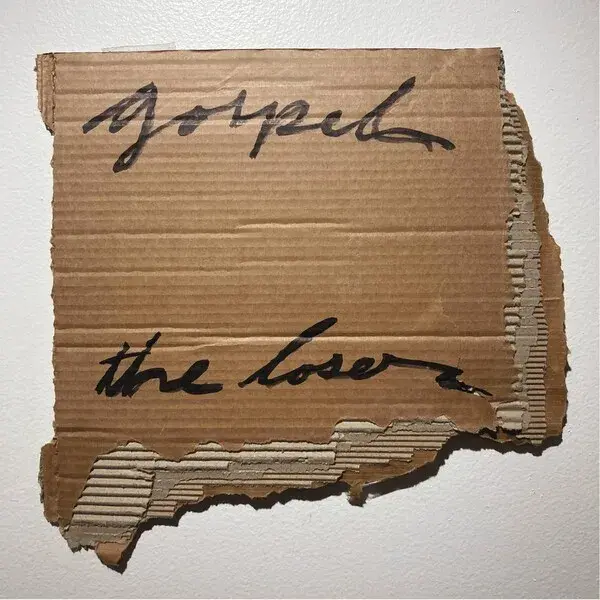 gospel
the loser